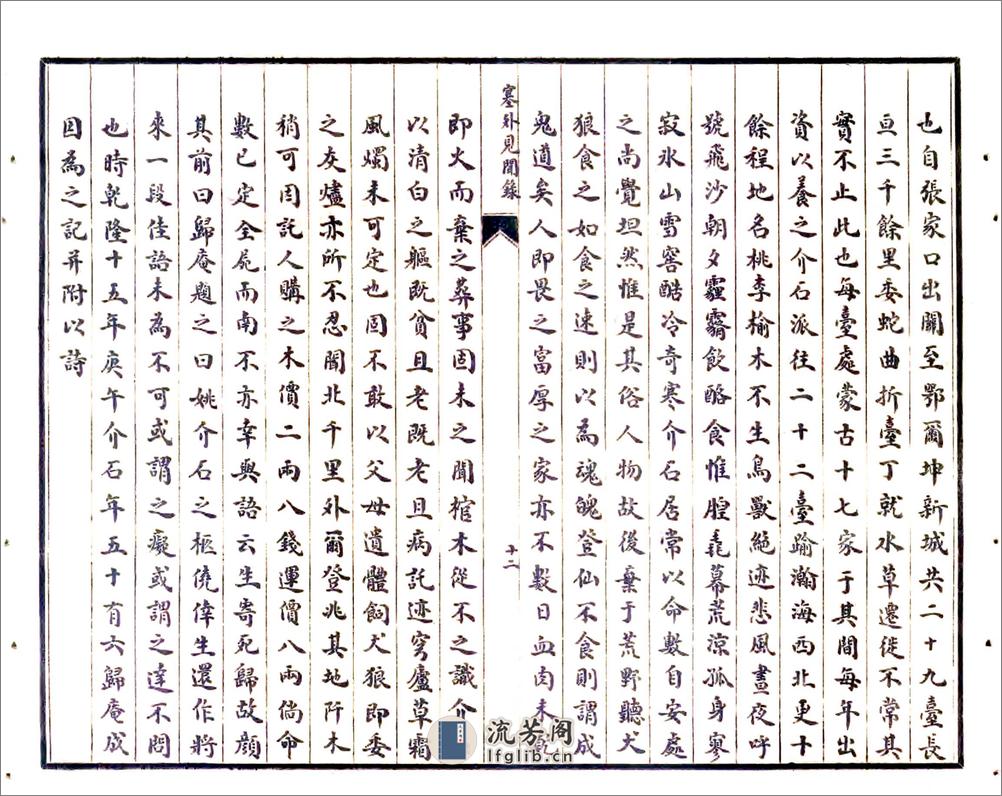 也自張家口出關至鄂爾坤新城共二十九臺長
亘三千餘里委蛇曲折臺丁就水草遷徙不常其
實不止此也每臺處蒙古十七家于其間每年出
資以養之介石派往二十二臺踰瀚海西北更十
餘程地名桃李榆木不生鳥獸絕迹悲風晝夜呼
號飛沙朝夕霾霿飲酪食惟腥毳幕荒涼孤身寥
寂氷山雪窖酷冷奇寒介石居常以命數自安處
之尚覺坦然惟是其俗人物故後棄于荒野聽犬
狼食之如食之速則以為魂魄登仙不食則謂成
鬼道矣人即畏之富厚之家亦不數日血肉未
塞外見聞錄
十二
即火而棄之葬事固未之聞棺木從不之識介
以清白之軀既貧且老既老且病託迹窮廬草霜
風燭未可定也固不敢以父母遺體飼犬狼即委
之灰爐亦所不忍聞北千里外爾登兆其地阡木
稍可因託人購之木價二兩八錢運價八兩倘命
數已定全屍而南不亦幸與語云生寄死歸故顏
其前曰歸庵題之曰姚介石之柩僥倖生還作將
來一段佳語未為不可或謂之癡或謂之達不問
也時乾隆十五年庚午介石年五十有六歸庵成
因為之記并附以詩
流芳阁
lfglib.cn